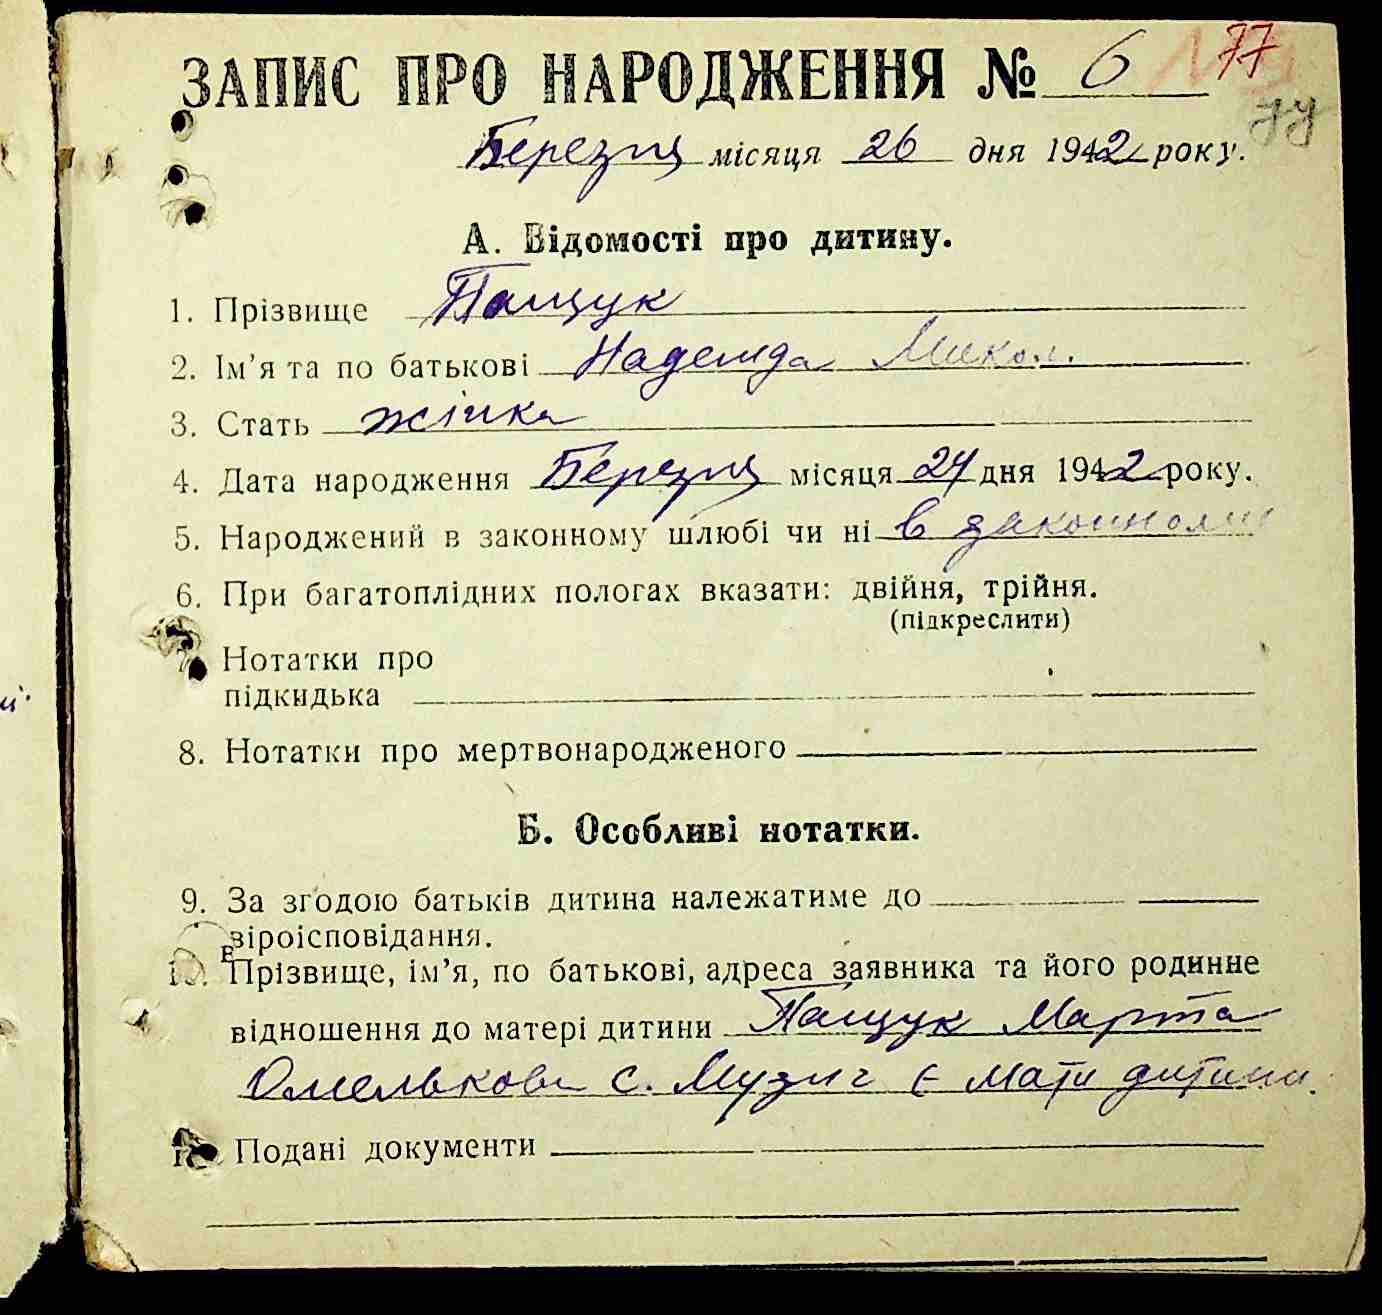 77
ЗАПИС ПРО НАРОДЖЕННЯ № 6
77
Березня місяця 26 дня 1942 року.
А. Відомості про дитину.
1. Прізвище Пащук
2. Ім'я та по батькові Надежда Микол.
3. Стать жінка
4. Дата народження Березня місяця 24 дня 1942 року.
5. Народжений в законному шлюбі чи ні в законному
6. При багатоплідних пологах вказати: двійня, трійня.
(підкреслити)
7. Нотатки про
підкидька
8. Нотатки про мертвонародженого
Б. Особливі нотатки.
9. За згодою батьків дитина належатиме до
віроісповідання.
10. Прізвище, ім'я, по батькові, адреса заявника та його родинне
відношення до матері дитини Пащук Марта
Омелькова с. Музич є мати дитини.
Подані документи